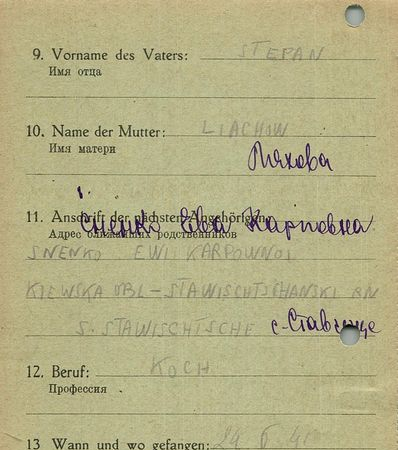 9. Vorname des Vaters: STEPAN
Имя отца
10. Name der Mutter: LIACHOW
Имя матери
Ляхова
11. Anschrift der nächsten Angehörigen:
Ева Карповна
Адрес ближайших родственников
SNENKO EWI KARPOWNOI
KIEWSKA OBL-STAWISCHTSCHANSKI RN
S. STAWISCHTSCHE с-Ставище
12. Beruf: KOCH
Профессия
13 Wann und wo gefangen: